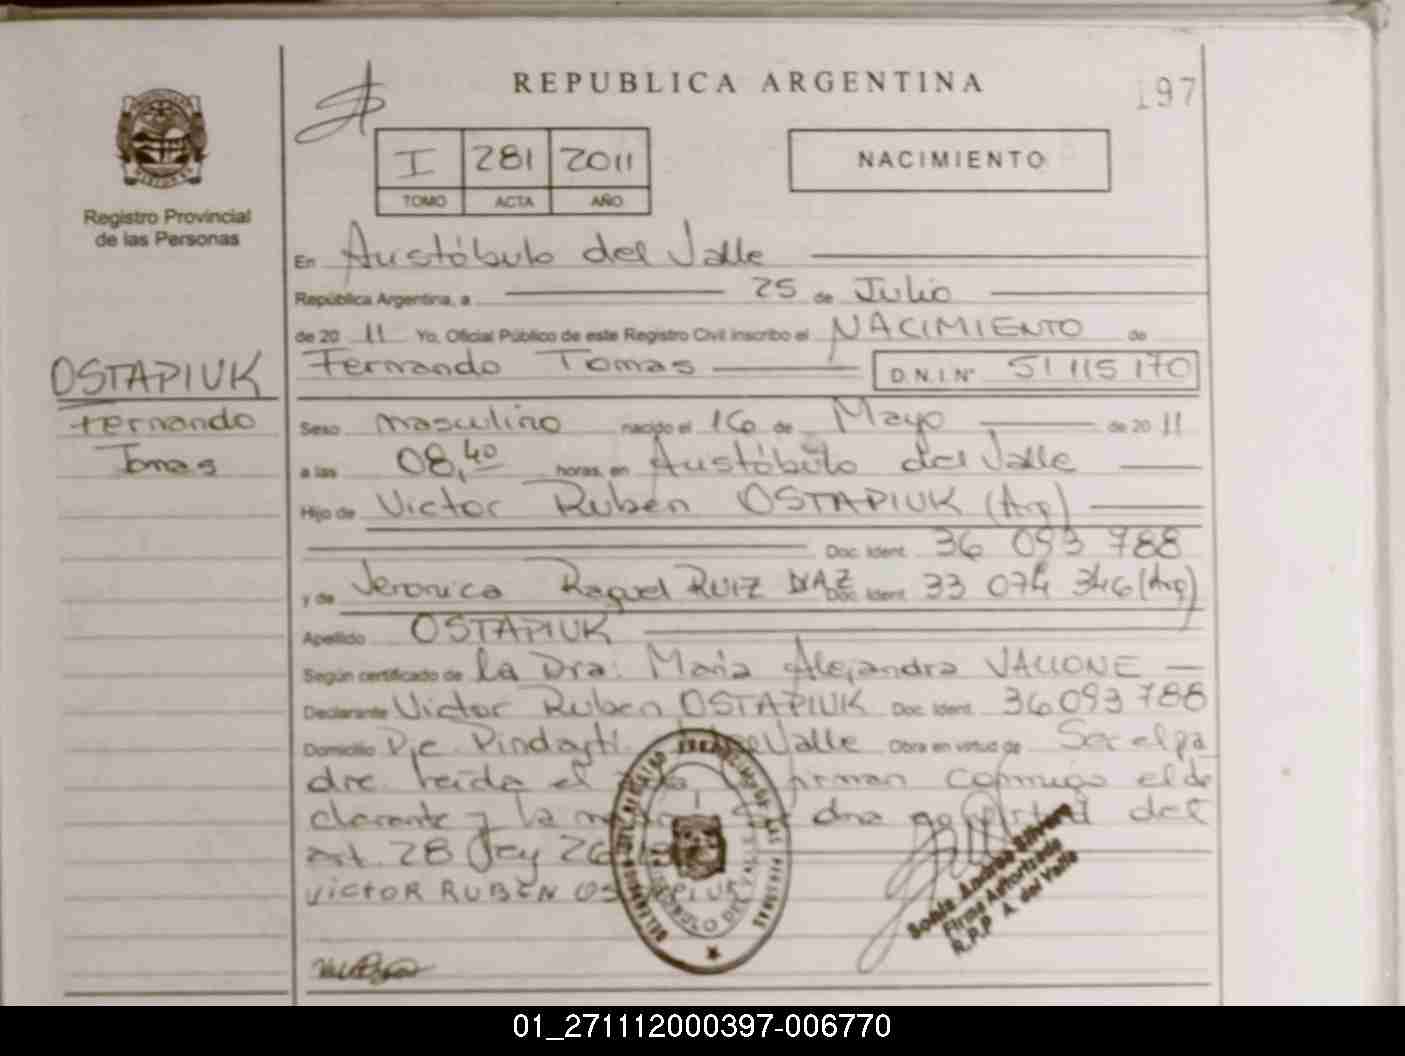 REPUBLICA ARGENTINA
197
I 281 2011
TOMO ACTA AÑO
NACIMIENTO
Registro Provincial
de las Personas
En Aristóbulo del Valle
República Argentina, a 25 de Julio
de 20 11 Yo, Oficial Público de este Registro Civil inscribo el NACIMIENTO de
Fernando Tomas D.N.I. Nº 51 115 170
OSTAPIUK
Fernando
Tomas
Sexo masculino nacido el 16 de Mayo de 20 11
a las 08,40 horas, en Aristóbulo del Valle
Hijo de Victor Ruben OSTAPIUK (Arg)
Doc. Ident. 36 093 788
y de Veronica Raquel RUIZ DIAZ Doc. Ident. 33 074 346 (Arg)
Apellido OSTAPIUK
Según certificado de la Dra. Maria Alejandra VALLONE
Declarante Victor Ruben OSTAPIUK Doc. Ident. 36093788
Domicilio Valle Obra en virtud de Ser el pa
dre leida el firman conmigo el de
clarante y la del
art. 28 Ley 26
VICTOR RUBEN
Sonia Andrea Silvero
Firma Autorizada
R.P.P A. del Valle
01_271112000397-006770